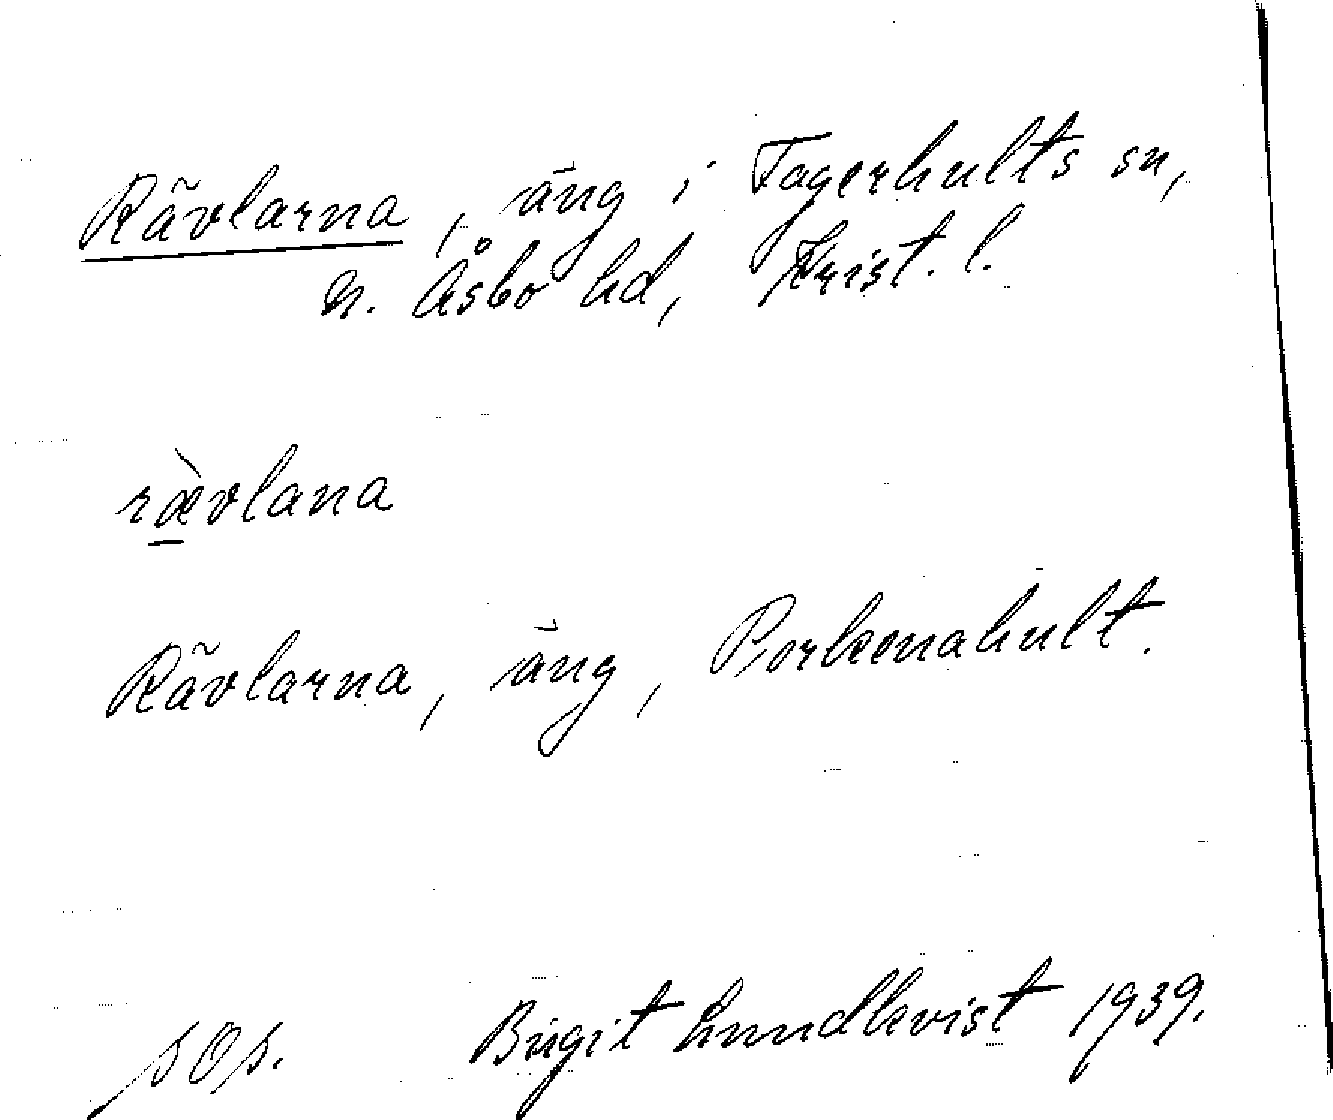 Rävlarna, äng i Fagerhults sn,
N. Åsbo hd, Krist. l.
ræ̀vlana
Rävlarna, äng, Porkenahult.
sOs. Birgit Lundkvist 1939.